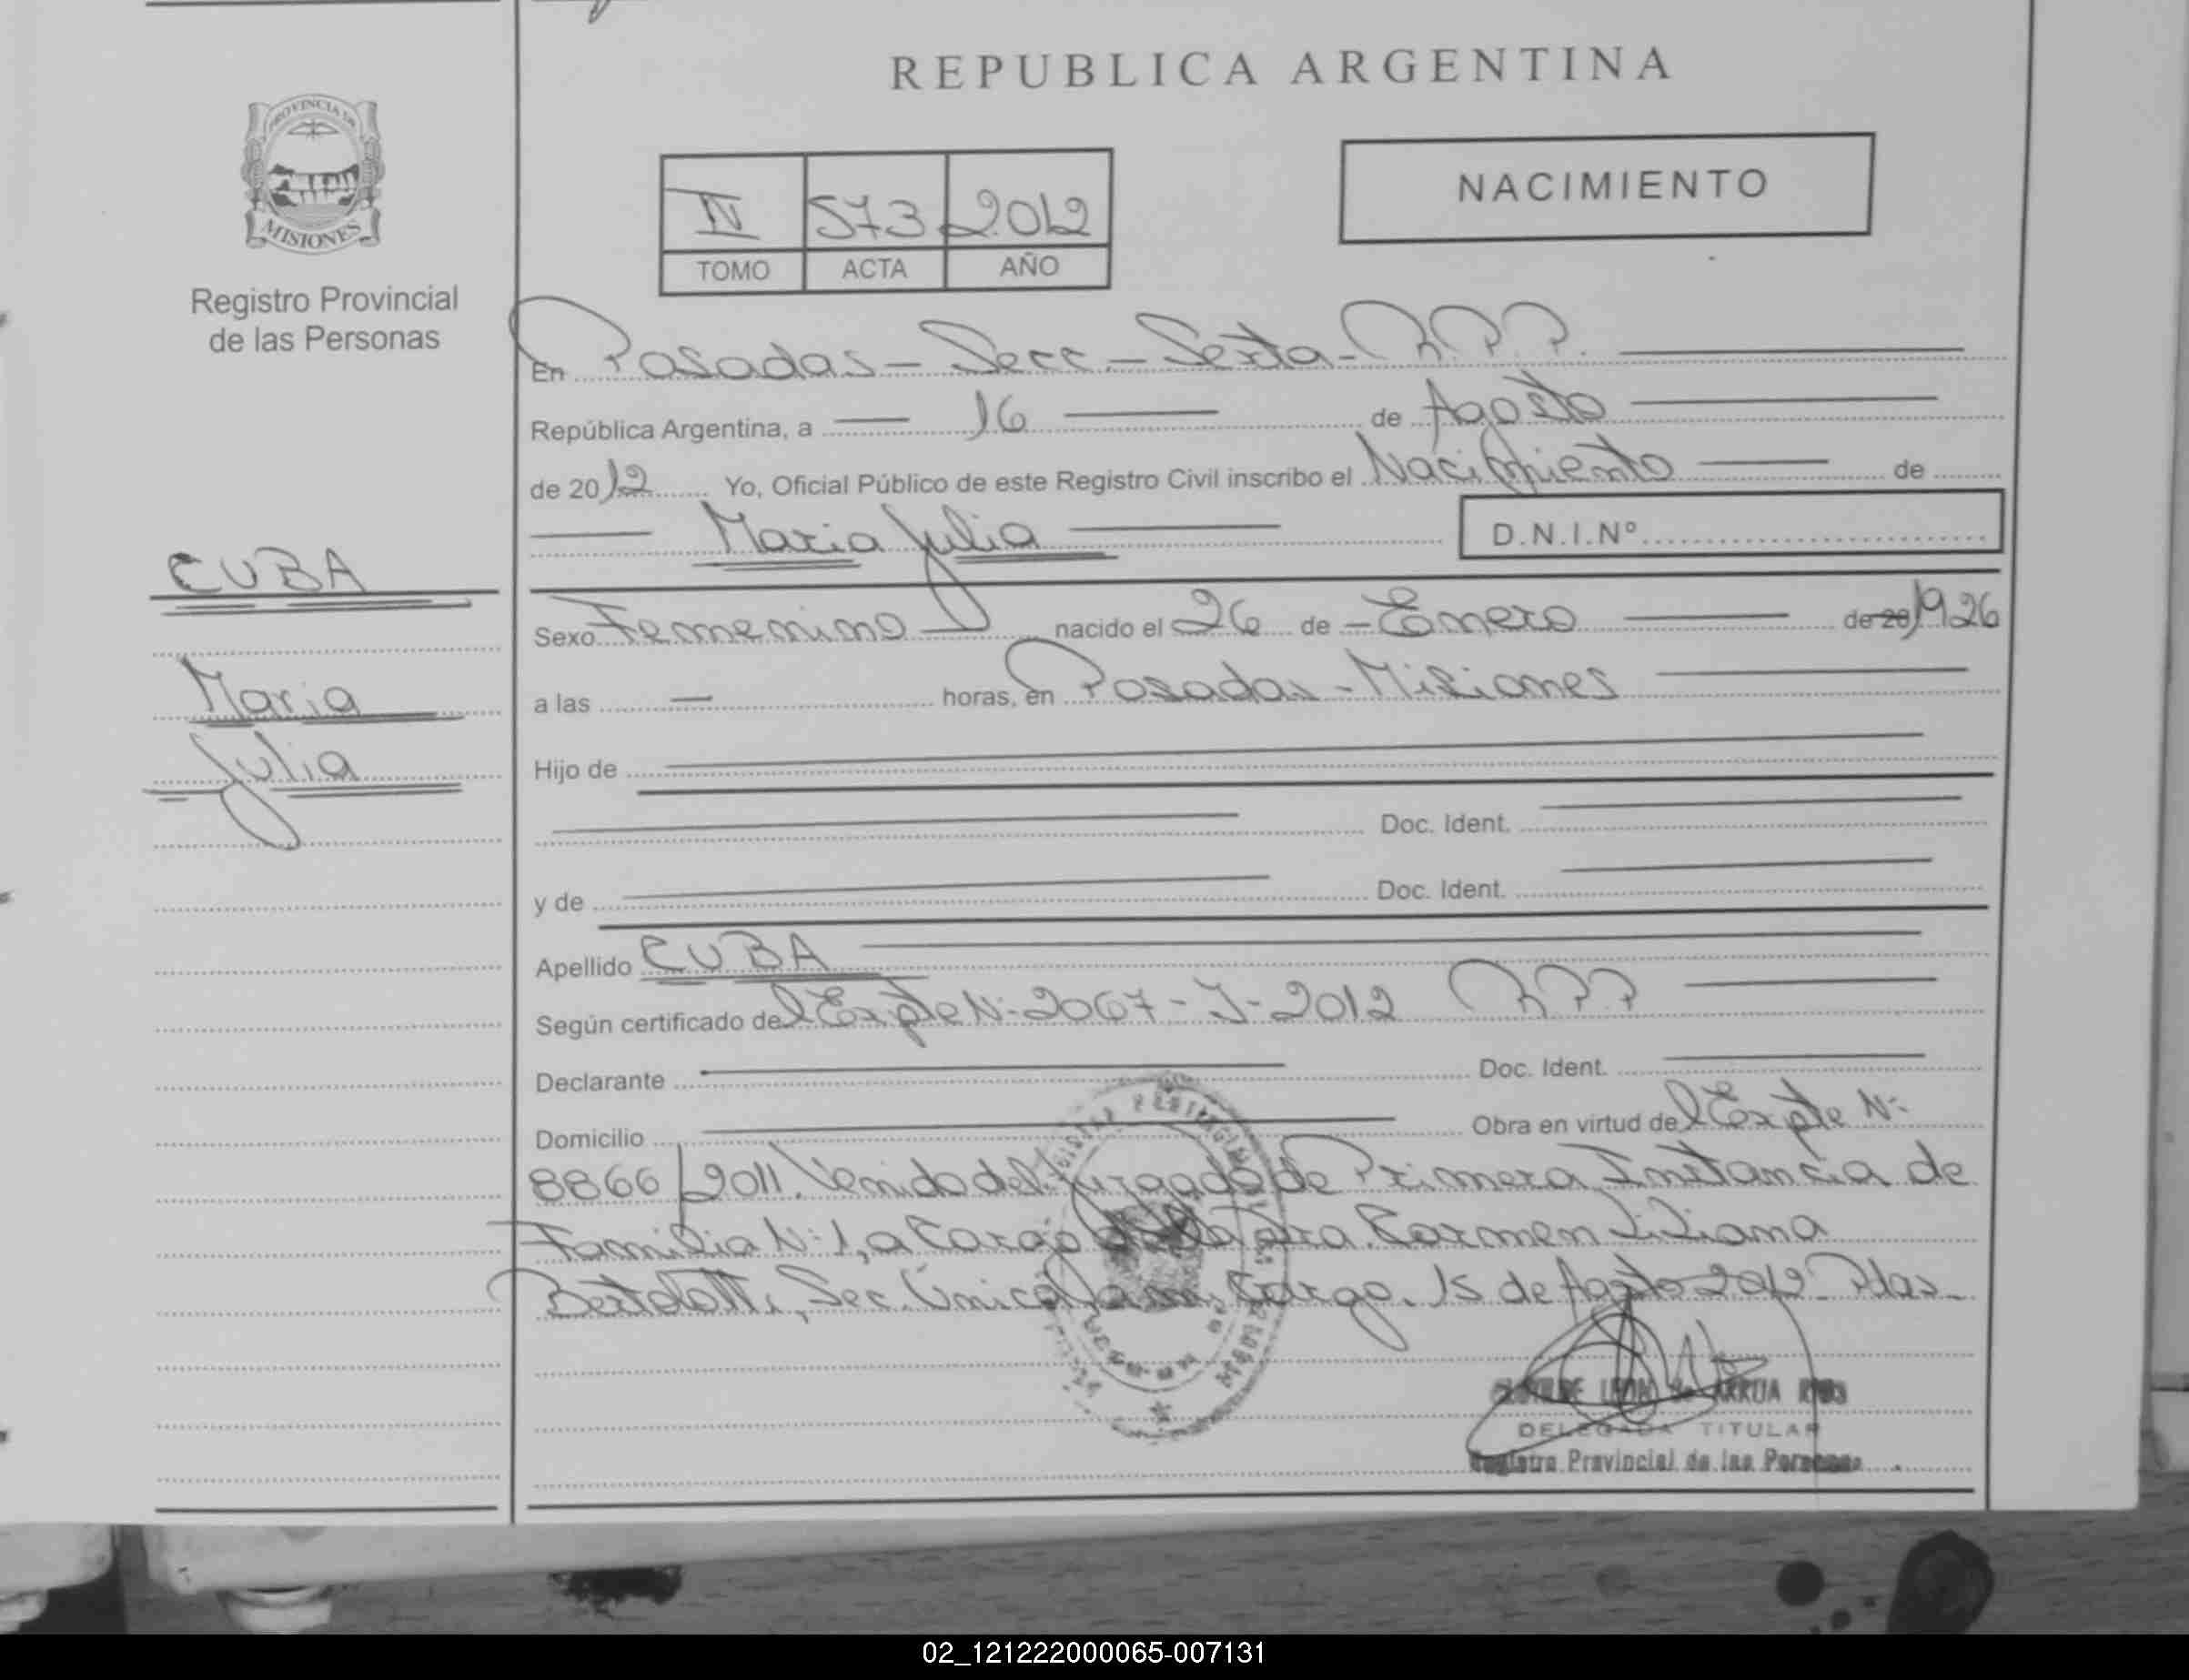 REPUBLICA ARGENTINA
PROVINCIA DE
MISIONES
Registro Provincial
de las Personas
NACIMIENTO
IV 573 2012
TOMO ACTA AÑO
En Posadas - Secc. - Sexta - R.P.P.
República Argentina, a — 16 — de Agosto
de 2012 Yo, Oficial Público de este Registro Civil inscribo el Nacimiento — de
Maria Julia
D.N.I.Nº
CUBA
Maria
Julia
Sexo Femenino nacido el 26 de - Enero — de 20 1926
a las — horas, en Posadas - Misiones
Hijo de
Doc. Ident.
y de Doc. Ident.
Apellido CUBA
Según certificado del Expte N: 2067 - J - 2012 RPP
Declarante Doc. Ident.
Domicilio Obra en virtud del Expte N:
8866/2011. Venido del Juzgado de Primera Instancia de
Familia N: 1, a Cargo de la Dra. Carmen Liliana
Bertolotti, Sec. Única Cargo. 15 de Agosto 2012 - Pdas -
LEON de ARRUA RIOS
DELEGADA TITULAR
Registro Provincial de las Personas
02_121222000065-007131